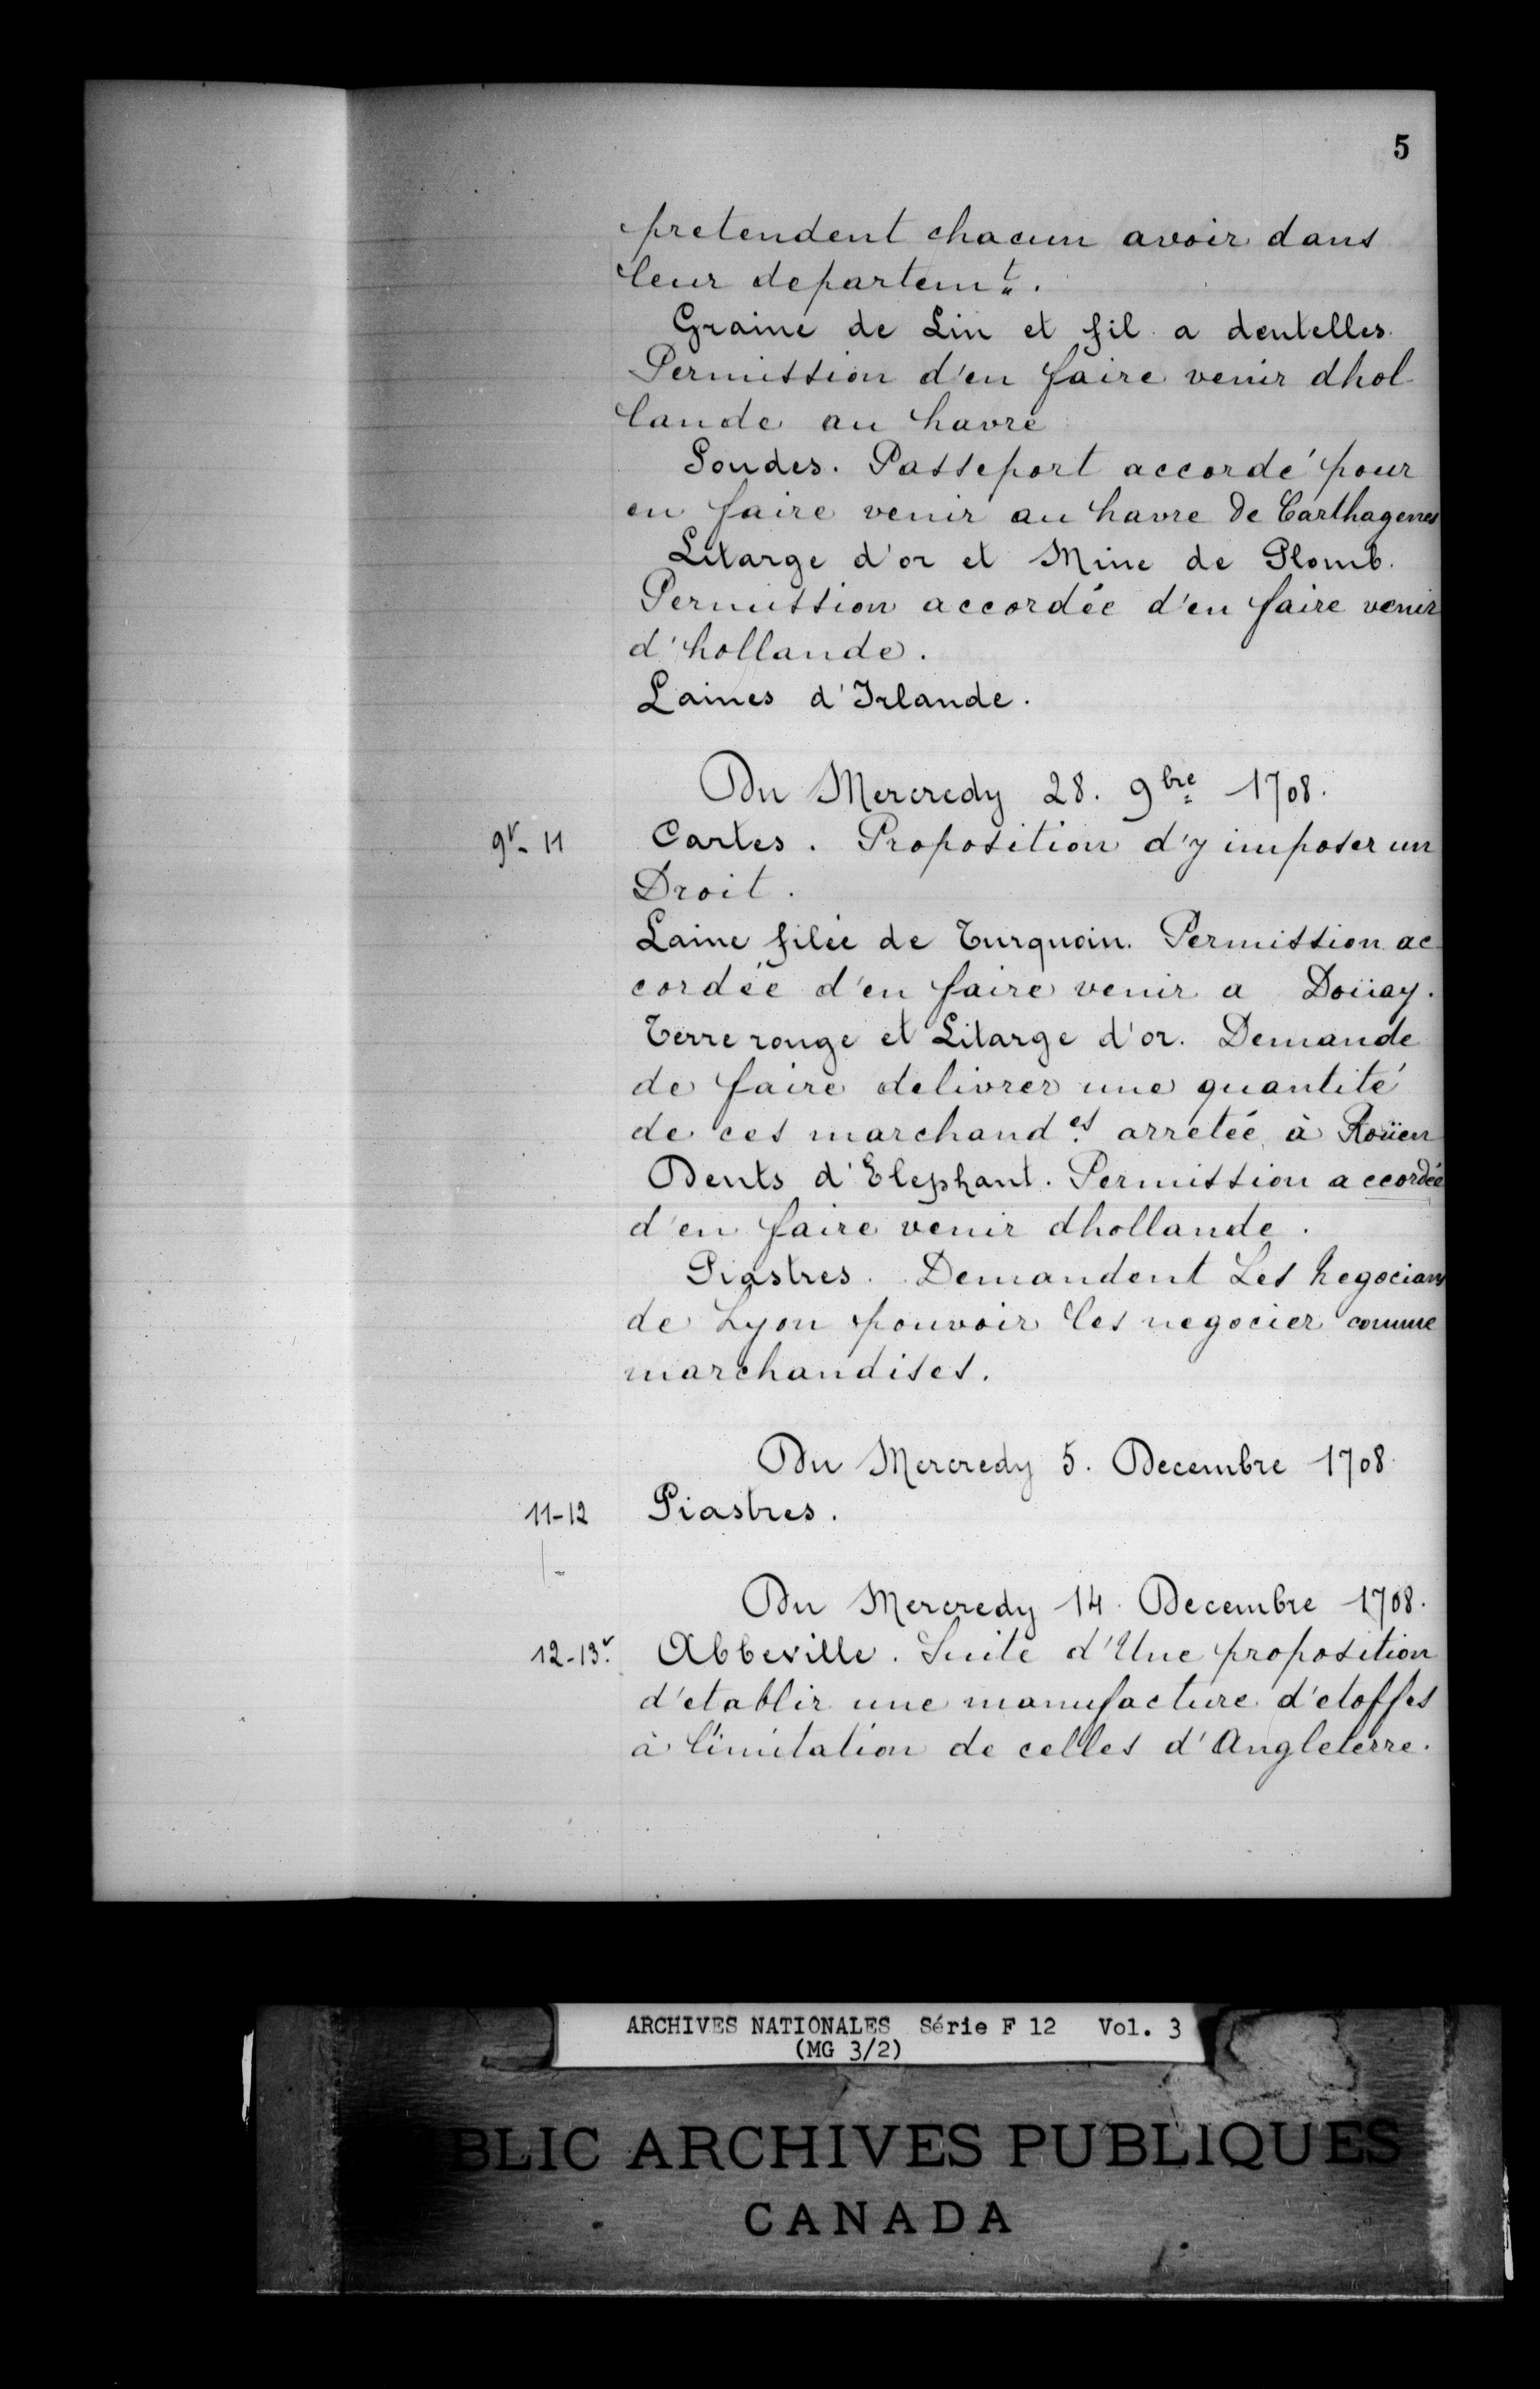 5
pretendent chacun avoir dans
leur departemt.
Graine de Lin et fil a dentelles.
Permission d'en faire venir dhol-
lande au havre
Soudes. Passeport accordé pour
en faire venir au havre de Carthagenes
Litarge d'or et Mine de Plomb.
Permission accordée d'en faire venir
d'hollande.
Laines d'Irlande.
Du Mercredy 28. 9bre 1708.
9v - 11 Cartes. Proposition d'y imposer un
Droit.
Laine filée de Turquoin. Permission ac-
cordée d'en faire venir a Doüay.
Terre rouge et Litarge d'or. Demande
de faire delivrer une quantité
de ces marchandes arretée à Roüen
Dents d'Elephant. Permission accordée
d'en faire venir dhollande.
Piastres. Demandent Les Negocians
de Lyon pouvoir les negocier comme
marchandises.
Du Mercredy 5. Decembre 1708.
11-12 Piastres.
Du Mercredy 14. Decembre 1708.
12-13v. Abbeville. Suite d'Une proposition
d'etablir une manufacture d'etoffes
à l'imitation de celles d'Angleterre.
ARCHIVES NATIONALES Série F 12 Vol. 3
(MG 3/2)
BLIC ARCHIVES PUBLIQUES
CANADA